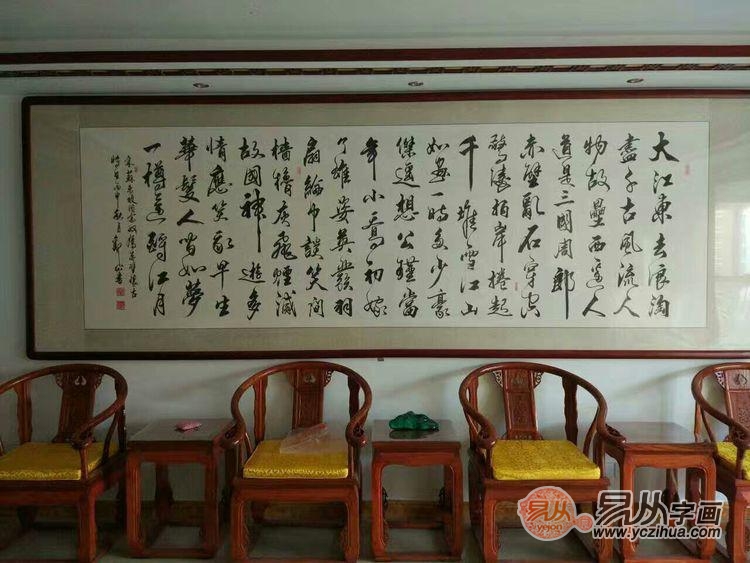 大江東去浪淘
盡千古風流人
物故壘西邊人
道是三國周郎
赤壁亂石穿空
驚濤拍岸捲起
千堆雪江山
如畫一時多少豪
傑遙想公瑾當
年小喬初嫁
了雄姿英發羽
扇綸巾談笑間
檣櫓灰飛煙滅
故國神遊多
情應笑我早生
華髮人皆如夢
一樽還酹江月
宋蘇東坡詞念奴嬌赤壁懷古
時在丙申秋月
易从
易从字画
www.yczihua.com